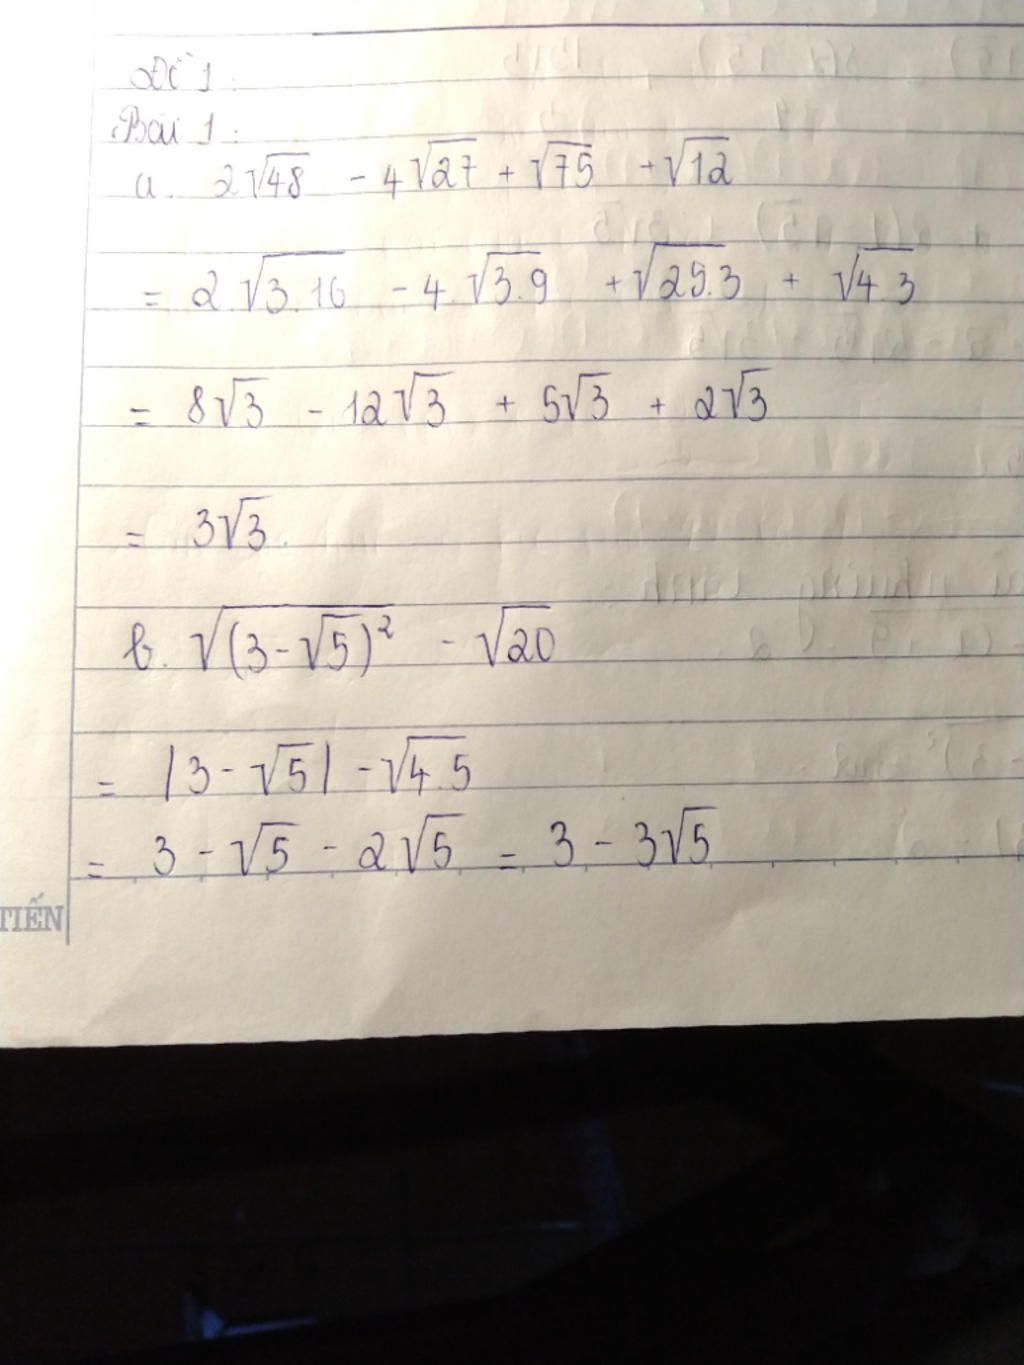 Đề 1:
Bài 1:
a. 2√48 - 4√27 + √75 + √12
= 2.√3.16 - 4.√3.9 + √25.3 + √4.3
= 8√3 - 12√3 + 5√3 + 2√3
= 3√3.
b. √(3-√5)² - √20
= |3-√5| - √4.5
= 3 - √5 - 2√5 = 3 - 3√5
TIẾN